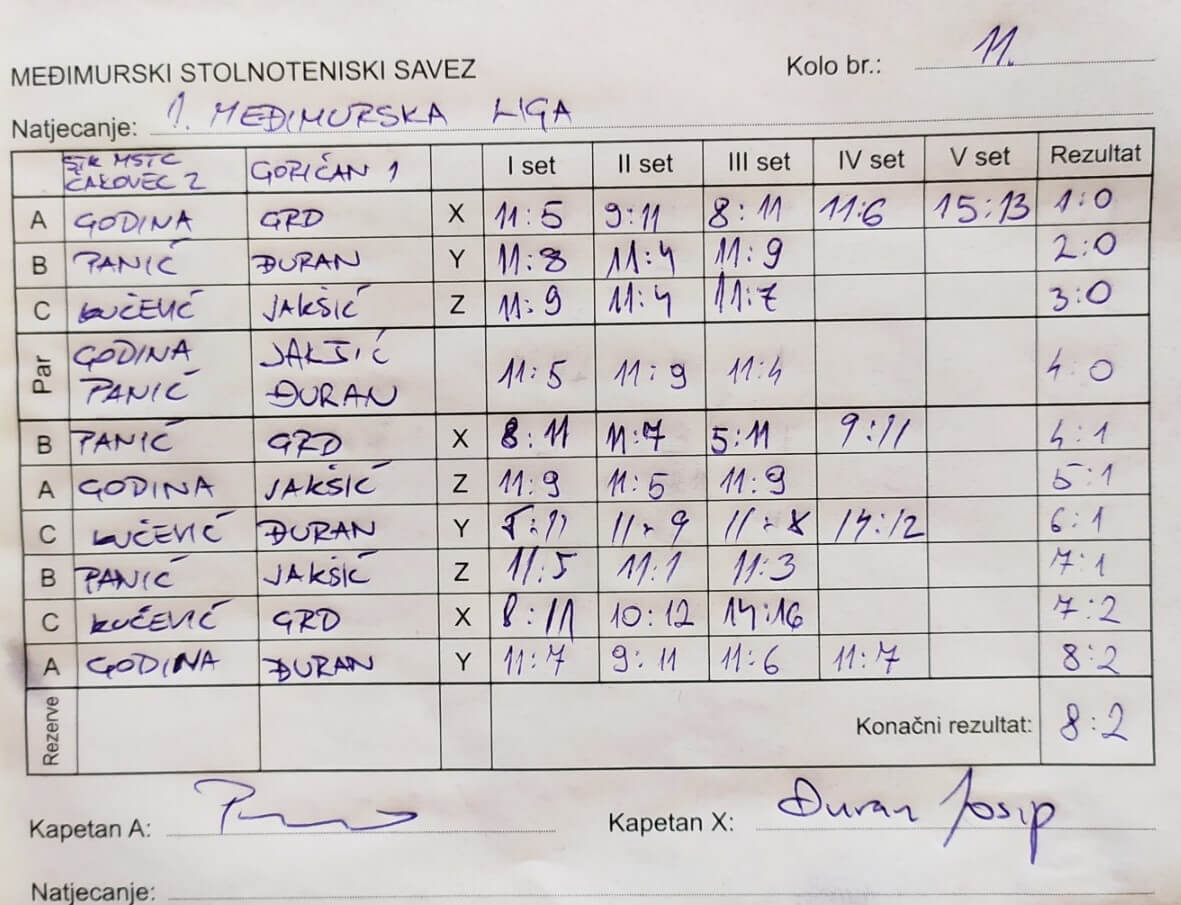 MEĐIMURSKI STOLNOTENISKI SAVEZ Kolo br.: 11.
Natjecanje: 1. MEĐIMURSKA LIGA
ŠTK MSTC ČAKOVEC 2 GORIČAN 1 I set II set III set IV set V set Rezultat
A GODINA GRD X 11:5 9:11 8:11 11:6 15:13 1:0
B PANIĆ ĐURAN Y 11:8 11:4 11:9 2:0
C KUČEVIĆ JAKŠIĆ Z 11:9 11:4 11:7 3:0
Par GODINA PANIĆ JAKŠIĆ ĐURAN 11:5 11:9 11:4 4:0
B PANIĆ GRD X 8:11 11:7 5:11 9:11 4:1
A GODINA JAKŠIĆ Z 11:9 11:5 11:9 5:1
C KUČEVIĆ ĐURAN Y :11 11:9 11:8 14:12 6:1
B PANIĆ JAKŠIĆ Z 11:5 11:1 11:3 7:1
C KUČEVIĆ GRD X 8:11 10:12 14:16 7:2
A GODINA ĐURAN Y 11:7 9:11 11:6 11:7 8:2
Rezerve Konačni rezultat: 8:2
Kapetan A: Kapetan X: Đuran Josip
Natjecanje: